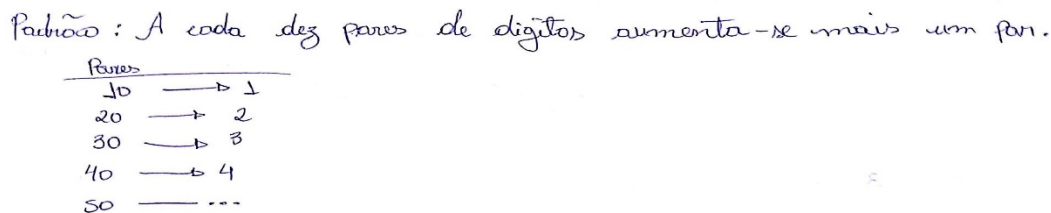 Padrão: A cada dez pares de digitos aumenta-se mais um par.
Pares
10 → 1
20 → 2
30 → 3
40 → 4
50 — ...